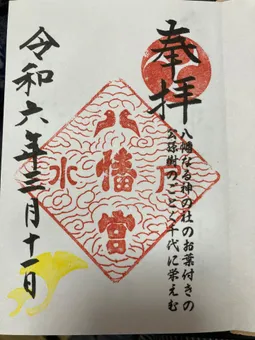 奉拝
八幡なる神の社のお葉付きの
公孫樹のごとく千代に栄えむ
水戸
八幡宮
令和六年三月十一日